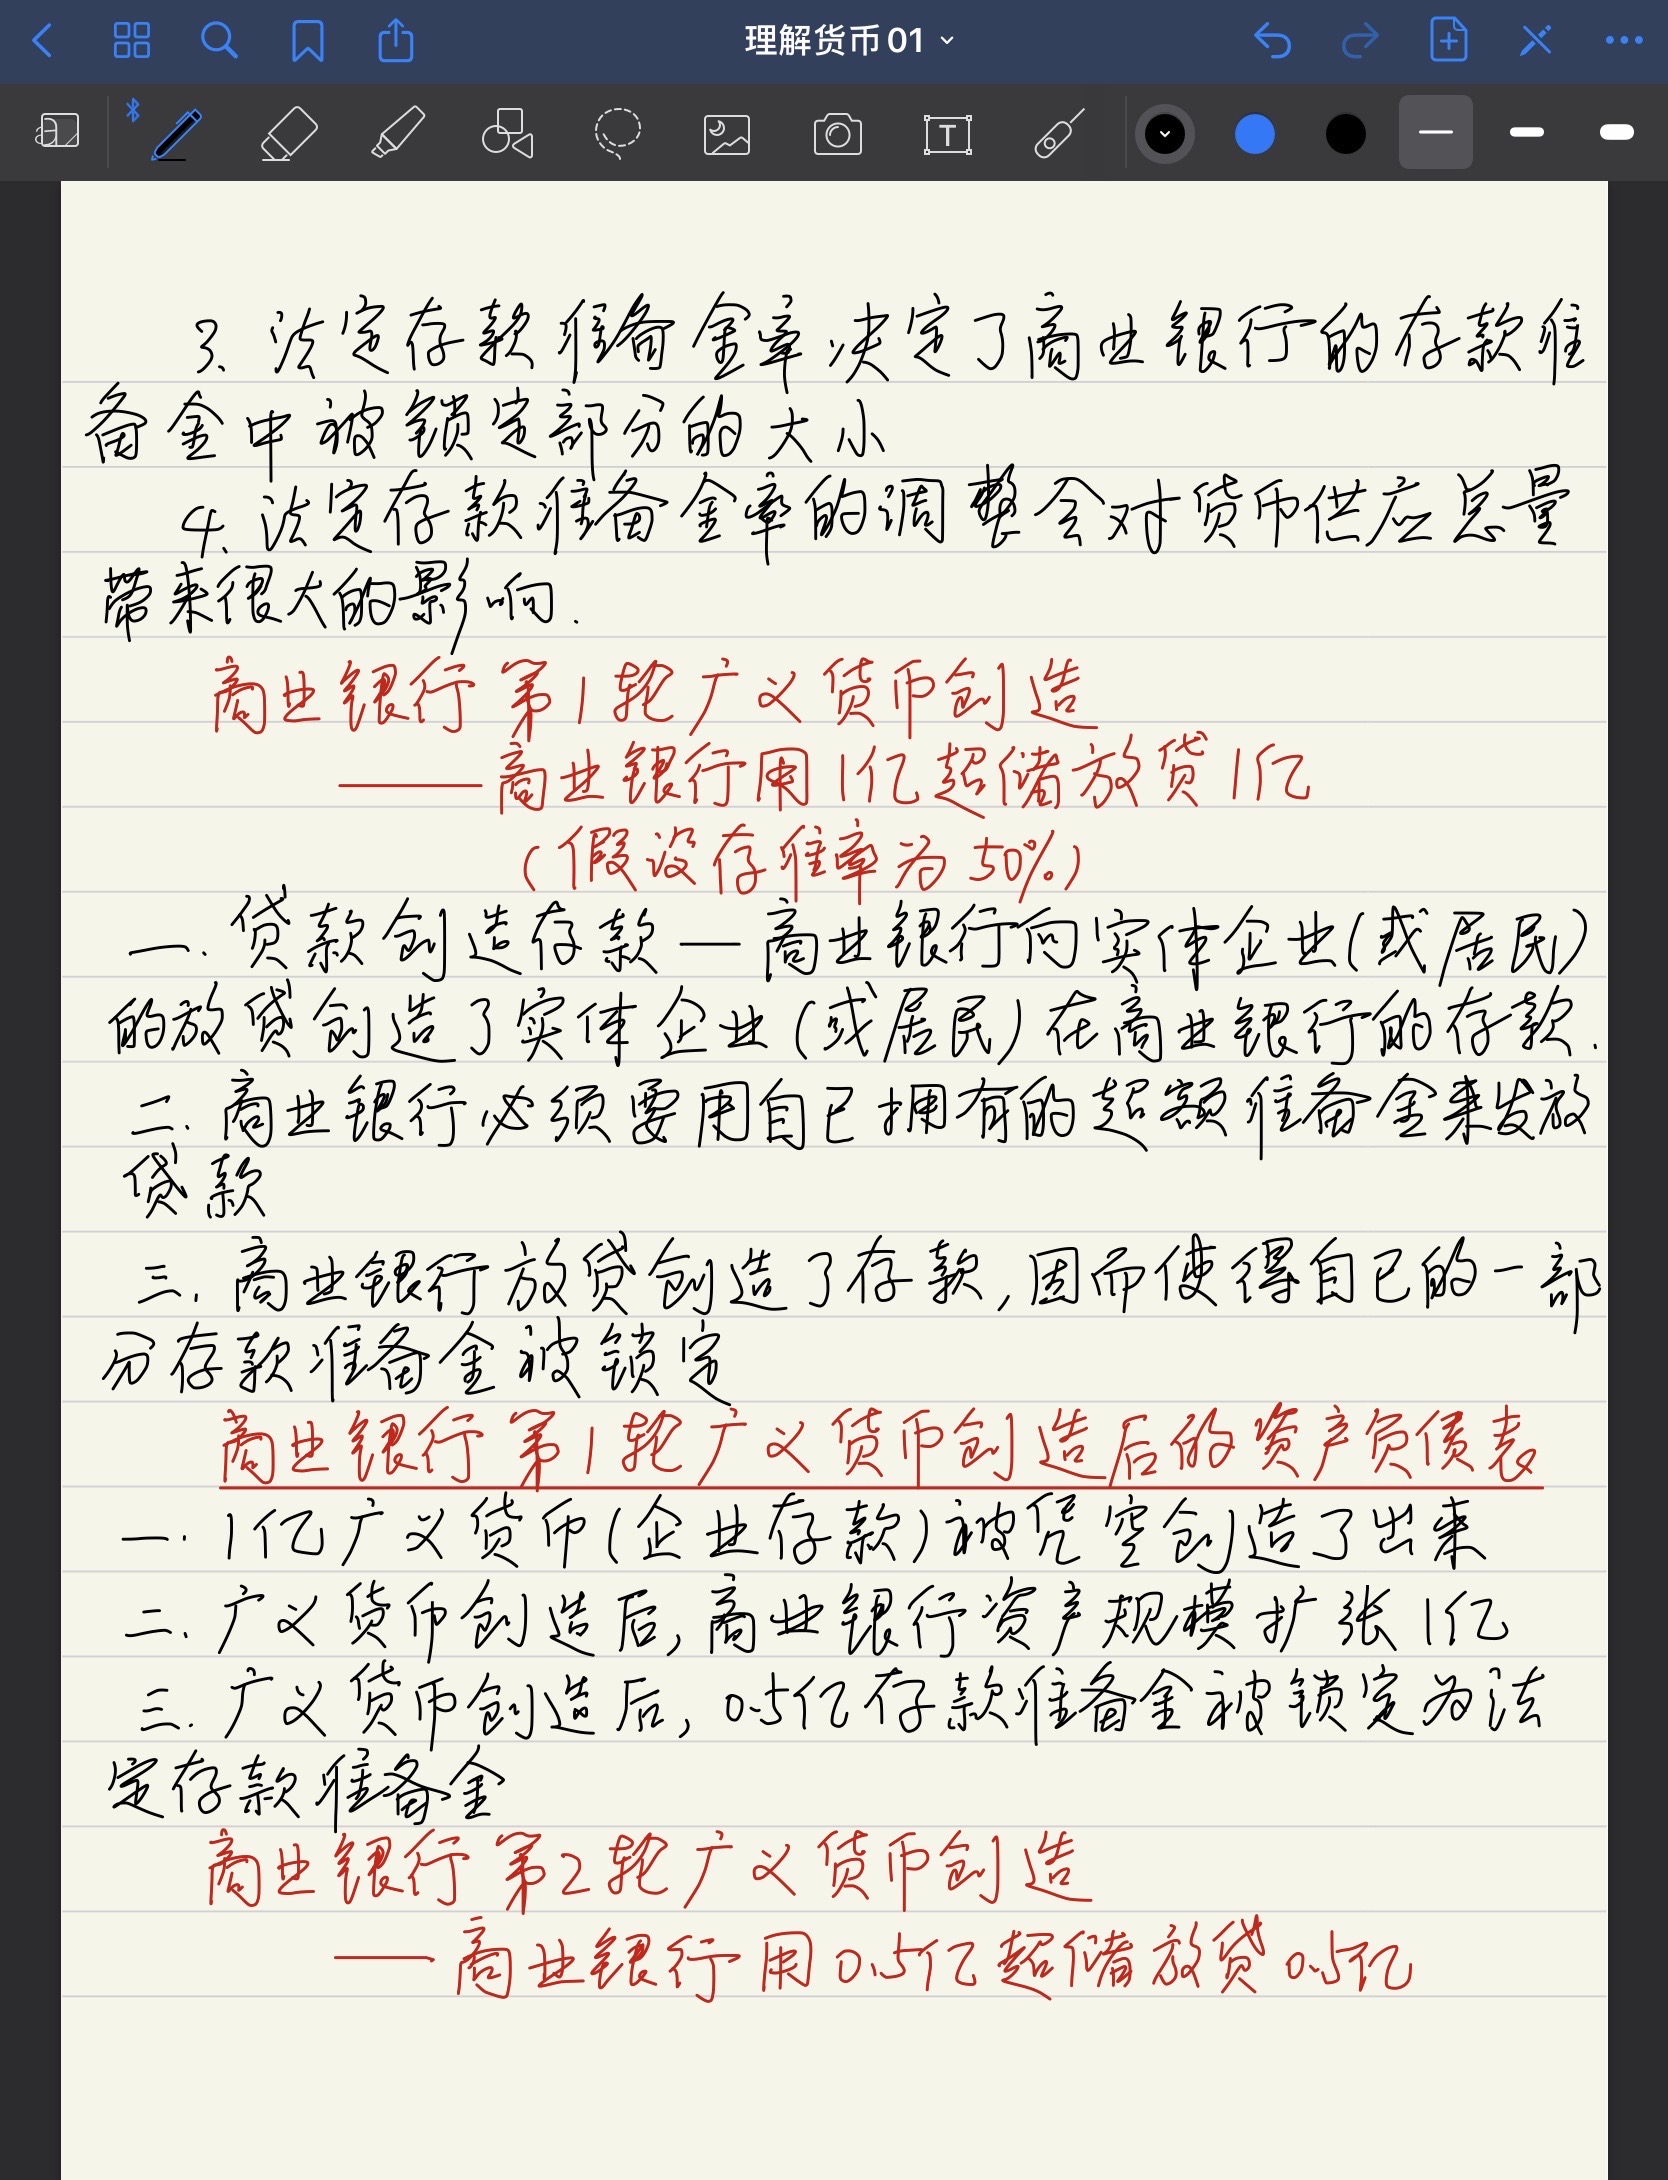 理解货币01
T
3、法定存款准备金率决定了商业银行的存款准
备金中被锁定部分的大小
4、法定存款准备金率的调整会对货币供应总量
带来很大的影响.
商业银行第1轮广义货币创造
——商业银行用1亿超储放贷1亿
(假设存准率为50%)
一.贷款创造存款—商业银行向实体企业(或居民)
的放贷创造了实体企业(或居民)在商业银行的存款.
二.商业银行必须要用自己拥有的超额准备金来发放
贷款
三.商业银行放贷创造了存款,因而使得自己的一部
分存款准备金被锁定
商业银行第1轮广义货币创造后的资产负债表
一.1亿广义货币(企业存款)被凭空创造了出来
二.广义货币创造后,商业银行资产规模扩张1亿
三.广义货币创造后,0.5亿存款准备金被锁定为法
定存款准备金
商业银行第2轮广义货币创造
——商业银行用0.5亿超储放贷0.5亿